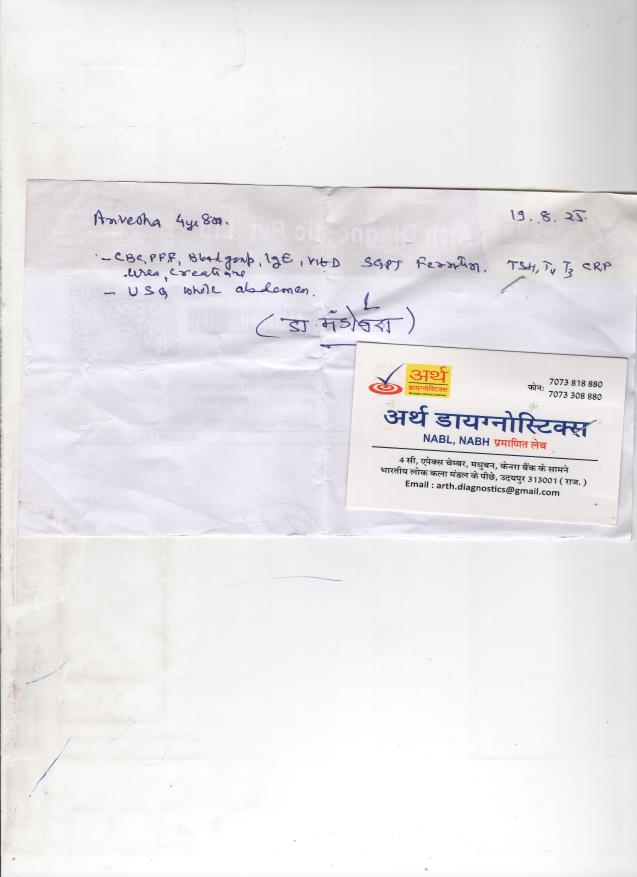 Anvesha 4yr 8m. 19.8.25.
- CBC, PBF, Blood group, IgE, Vit D SGPT Ferritin. TSH, T4 T3 CRP
Urea, Creatine
- USG whole abdomen.
( डा. मंडोवरा )
अर्थ
डायग्नोस्टिक्स
फोन: 7073 818 880
7073 308 880
अर्थ डायग्नोस्टिक्स
NABL, NABH प्रमाणित लेब
4 सी, एपेक्स चेम्बर, मधुबन, केनरा बैंक के सामने
भारतीय लोक कला मंडल के पीछे, उदयपुर 313001 ( राज. )
Email : arth.diagnostics@gmail.com